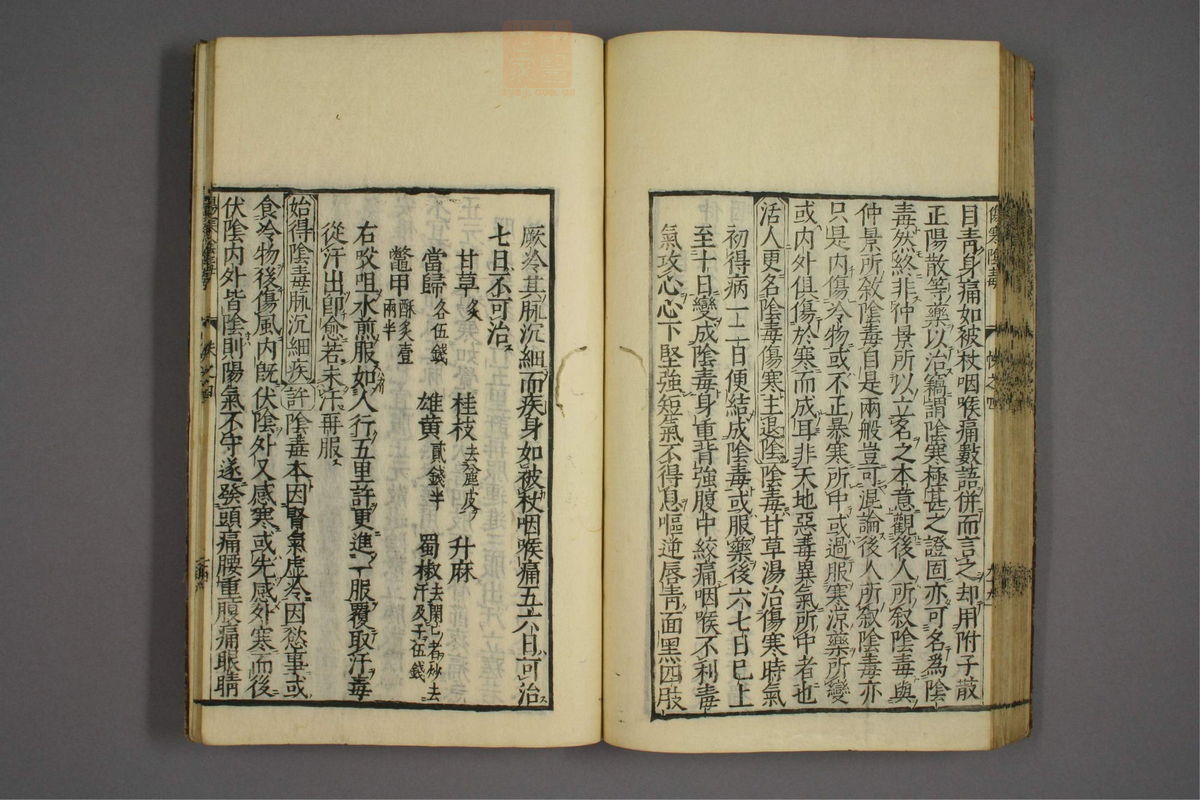 目青身痛如被杖咽喉痛數語併而言之却用附子散
正陽散等藥以治竊謂陰寒極甚之證固亦可名為陰
毒然終非仲景所以立名之本意觀後人所敘陰毒與
仲景所敘陰毒自是兩般豈可混論後人所敘陰毒亦
只是内傷冷物或不正暴寒所中或過服寒涼藥所變
或内外俱傷於寒而成耳非天地惡毒異氣所中者也
活人更名陰毒傷寒主退陰陰毒甘草湯治傷寒時氣
初得病一二日便結成陰毒或服藥後六七日已上
至十日變成陰毒身重背強腹中絞痛咽喉不利毒
氣攻心心下堅強短氣不得息嘔逆唇青面黑四肢
厥冷其脉沉細而疾身如被杖咽喉痛五六日可治
七日不可治
甘草炙 桂枝去麄皮 升麻
當歸各伍錢 雄黄貳錢半 蜀椒去閉口者炒去汗及子伍錢
鼈甲酥炙壹兩半
右㕮咀水煎服如人行五里許更進一服覆取汗毒
從汗出即愈若未汗再服
始得陰毒脉沉細疾許陰毒本因腎氣虚冷因慾事或
食冷物後傷風内旣伏陰外又感寒或先感外寒而後
伏陰内外皆陰則陽氣不守遂發頭痛腰重腹痛眼睛